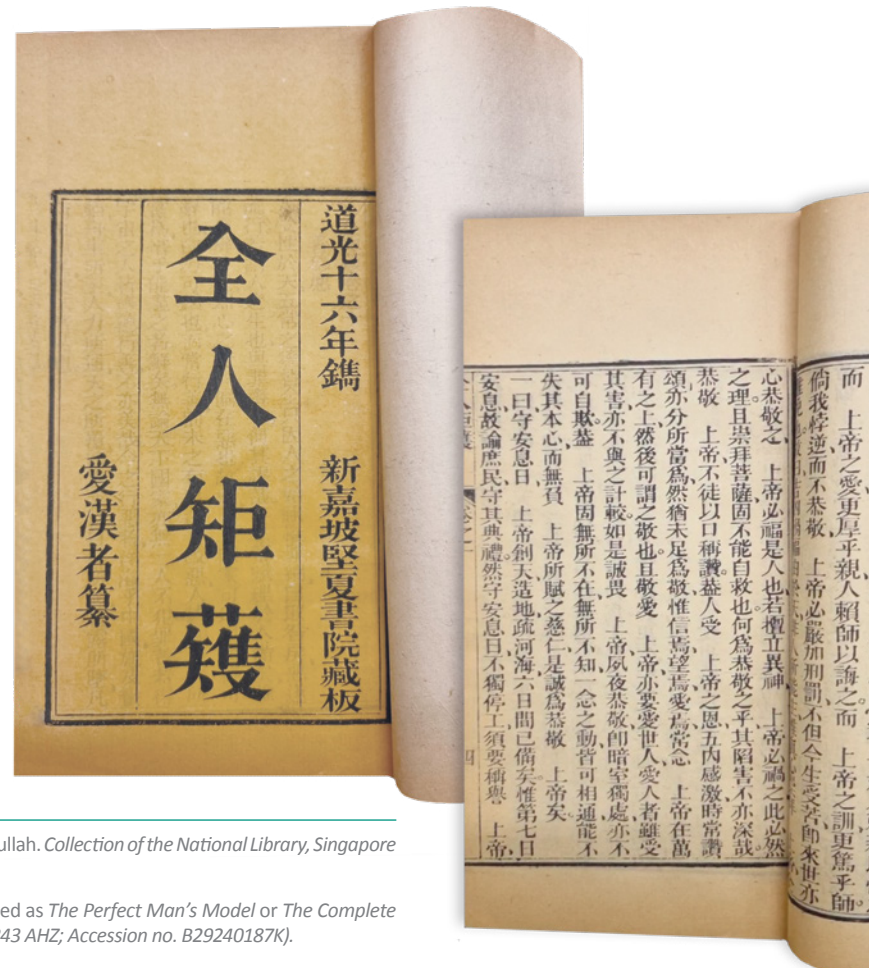 道光十六年鐫 新嘉坡堅夏書院藏板
全人矩矱
愛漢者纂
而 上帝之愛更厚乎親人賴師以誨之而 上帝之訓更篤乎師。
倘我悖逆而不恭敬 上帝必嚴加刑罰不但今生受苦卽來世亦
心恭敬之、 上帝必福是人也若擅立異神、 上帝必禍之此必然
之理且崇拜菩薩固不能自救也何為恭敬之乎其陷害不亦深哉
恭敬 上帝不徒以口稱讚葢人受 上帝之恩五內感激時常讚
頌亦分所當為然猶未足為敬惟信焉望焉愛焉常念 上帝在萬
有之上然後可謂之敬也且敬愛 上帝亦要愛世人愛人者雖受
其害亦不與之計較如是誠畏 上帝夙夜恭敬卽暗室獨處亦不
可自欺葢 上帝固無所不在無所不知一念之動皆可相通能不
失其本心而無負 上帝所賦之慈仁是誠為恭敬 上帝矣
一曰守安息日 上帝創天造地疏河海六日間已備矣惟第七日
安息故諭庶民守其典禮然守安息日不獨停工須要稱譽 上帝
四
ullah. Collection of the National Library, Singapore
ed as The Perfect Man's Model or The Complete
943 AHZ; Accession no. B29240187K).